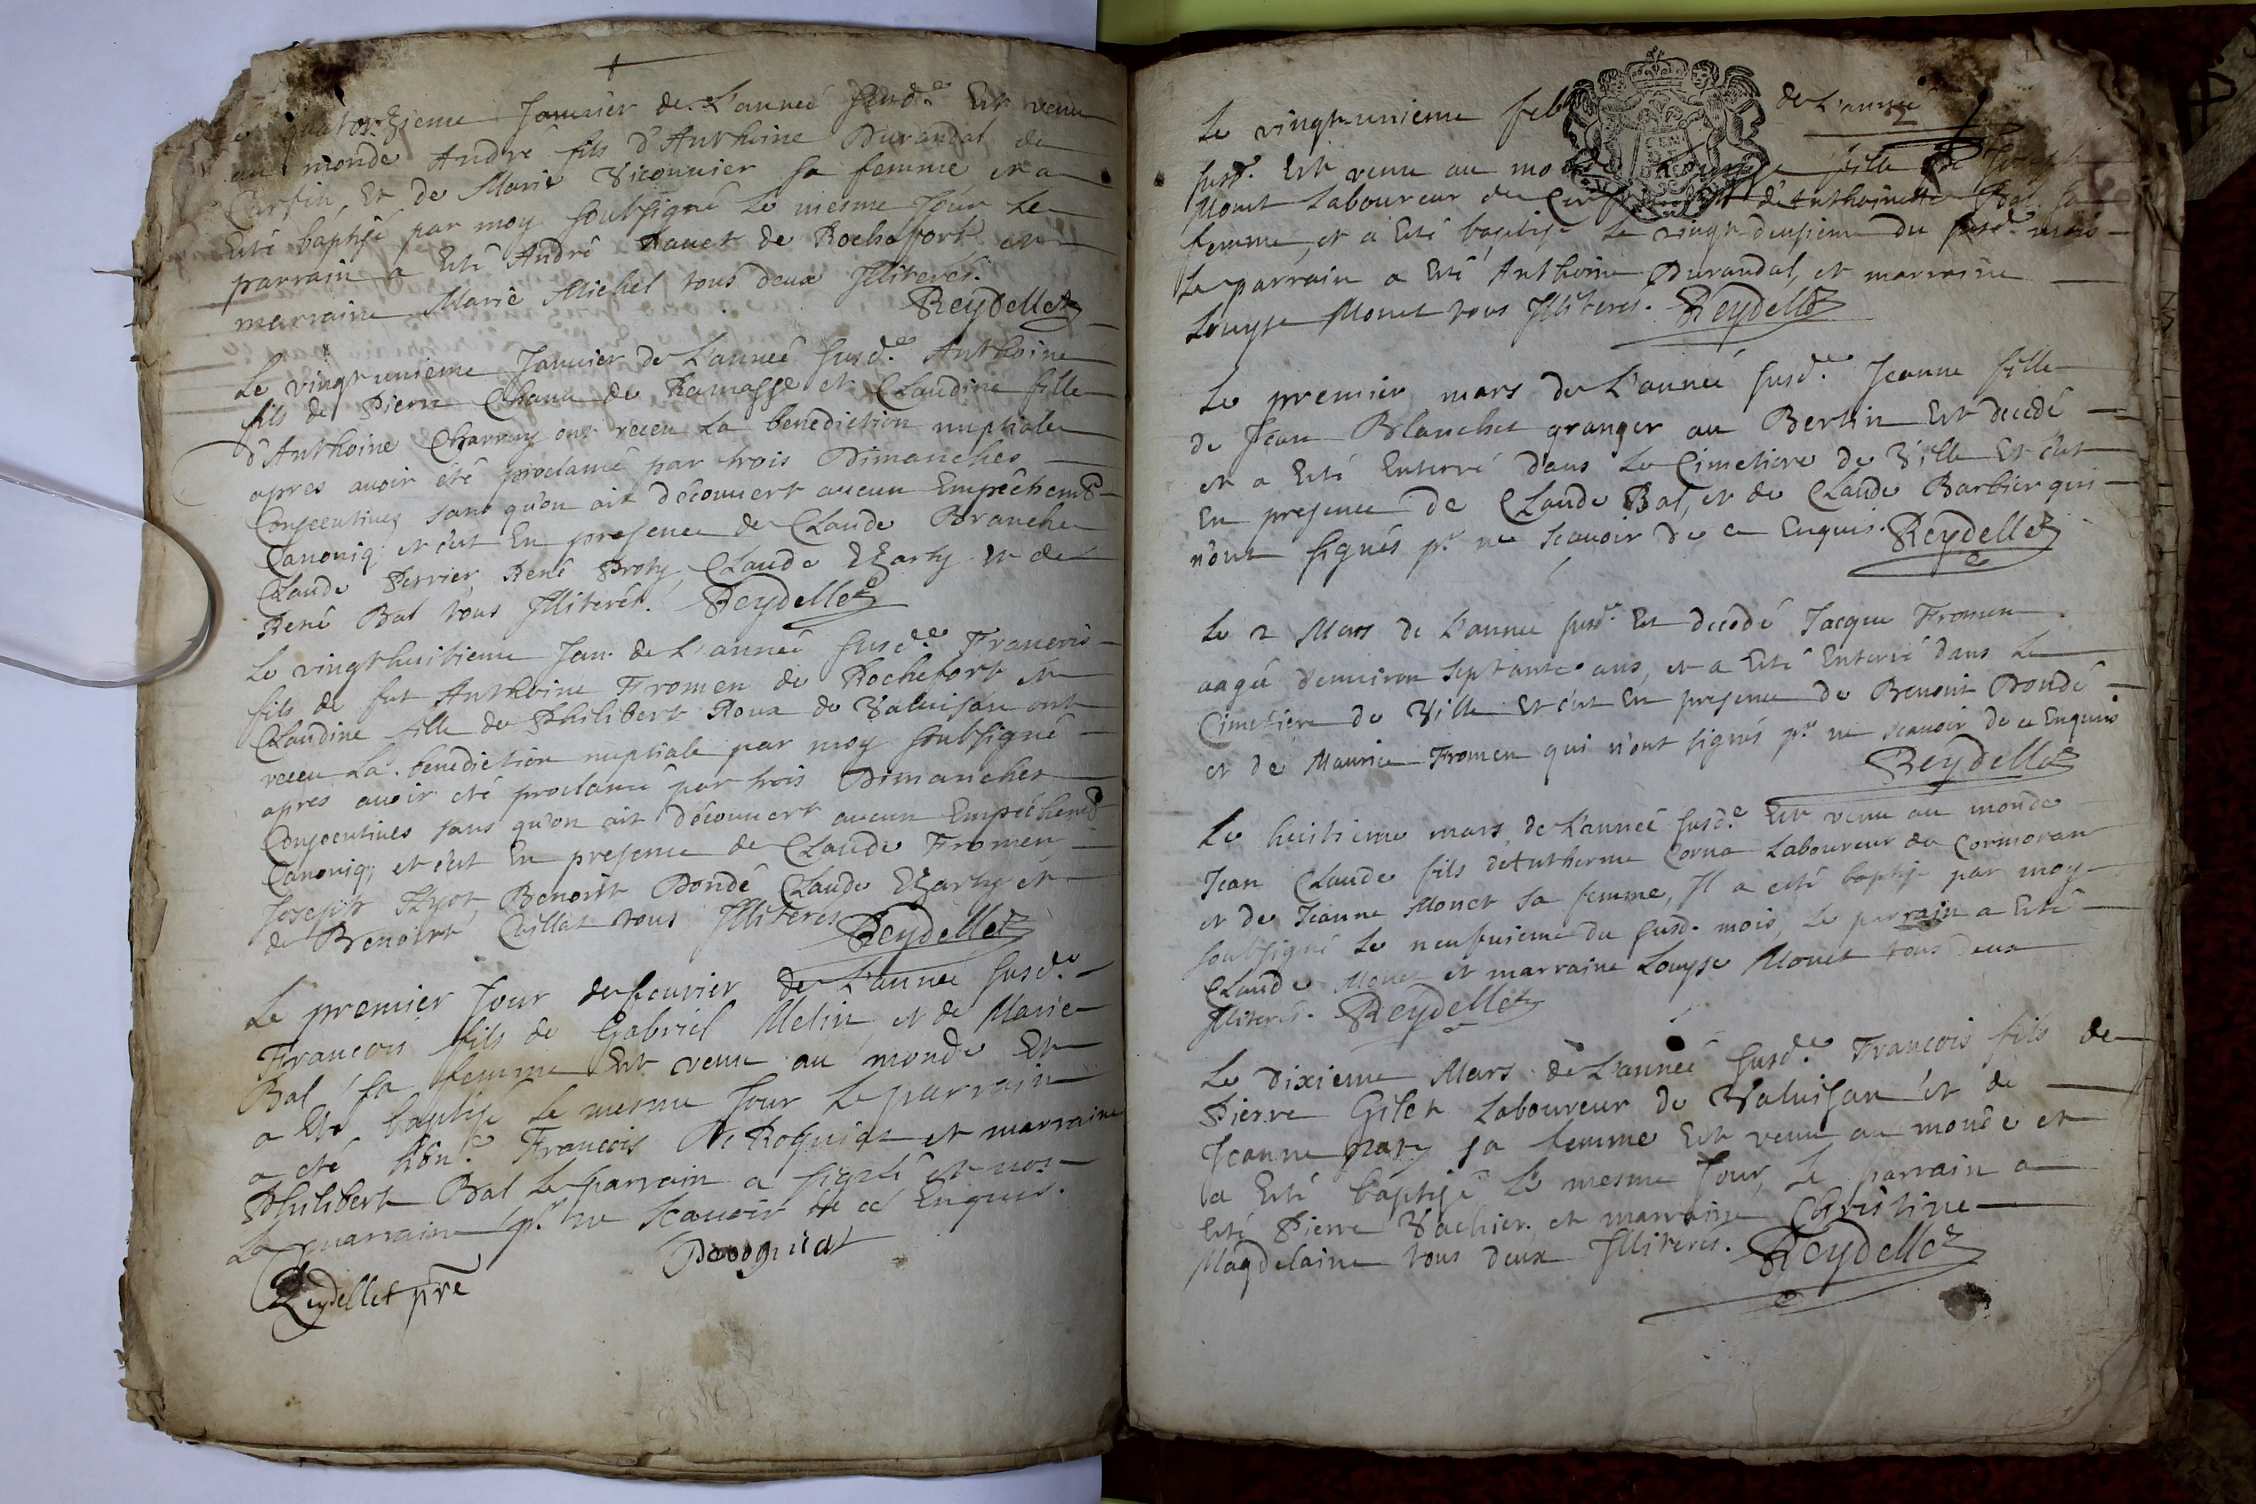 quatorzieme Januier de L'anneé susd.e Est venu
au monde André fils d'Anthoine Durandal de
Curfin, Et de Marie Viconnier sa femme et a
Esté baptisé par moy soubsigné Le mesme Jour Le
parrain a Esté André de Rochefort et
marraine Marie Michel tous deux Jlliterés.
Reydellet
Le vingt unieme Januier de L'anneé susd.e Anthoine
fils de Pierre Chanu de Ramasse et Claudine fille
d'Anthoine Charruy ont receu La benediction nuptiale
apres auoir été proclamé par trois Dimanches
Consecutiues sans qu'on ait découuert aucun Empêchemt
Canoniq; et c'est En presence de Claude Branche
Claude Perrier René Proby Claude et de
René Bal tous Jlliterés. Reydellet
Le vingthuitieme Jan. de L'anneé susd.e Francois
fils de fut Anthoine Fromen de Rochefort et
Claudine fille de Philibert Roux de Valuisan ont
receu La benediction nuptiale par moy soubsigné
apres auoir eté proclamé par trois Dimanches
Consecutiues sans qu'on ait découuert aucun Empêchemt
Canoniq; et c'est En presence de Claude Fromen
Joseph Benoist Dondé Claude et
de Benoist Cuillat tous Jlliterés Reydellet
Le premier Jour de feurier de L'anneé susd.e
Francois fils de Gabriel Melin et de Marie
Bal sa femme Est venu au monde Et
a Eté baptisé Le mesme Jour Le parrain
a eté hon.e Francois et marraine
Philiberte Bal Le parrain a signé et non
La marraine p.r ne scauoir de ce Enquis.
Reydellet pre
Le vingt unieme feb de L'anneé
susd.e Est venu au monde Louyse fille de Joseph
Monet Laboureur de d'Anthoinette Bal sa
femme, et a Esté baptisé Le vingt deusieme du susd.e mois
Le parrain a Esté Anthoine Durandal, et marraine
Louyse Monet tous Jlliterés. Reydellet
Le premier mars de L'anneé susd.e Jeanne fille
de Jean Blanchet granger au Bertin Est decedé
et a Esté Enterré dans Le Cimetiere de Ville Et c'est
En presence de Claude Bal, et de Claude Barbier qui
n'ont signés p.r ne scauoir de ce Enquis. Reydellet
Le 2 Mars de L'anneé susd.e Est decédé Jacque Fromen
aagé d'enuiron septante ans, et a Esté Enterré dans Le
Cimetiere de Ville Et c'est En presence de Benoist Dondé
et de Maurice Fromen qui n'ont signés p.r ne scauoir de ce Enquis
Reydellet
Le huitieme mars de L'anneé susd.e Est venu au monde
Jean Claude fils d'Antherme Corna Laboureur de Cormoran
et de Jeanne Monet sa femme, Jl a esté baptisé par moy
soubsigné Le neufuieme du susd. mois, Le parrain a Esté
Claude Monet et marraine Louyse Monet tous deux
Jlliterés. Reydellet
Le Dixieme Mars de L'anneé susd.e Francois fils de
Pierre Gilet Laboureur de Valuisan et de
Jeanne sa femme Est venu au monde et
a Esté baptisé Le mesme Jour, Le parrain a
Esté Pierre Vachier et marraine Christine
Magdelaine tous deux Jlliterés. Reydellet